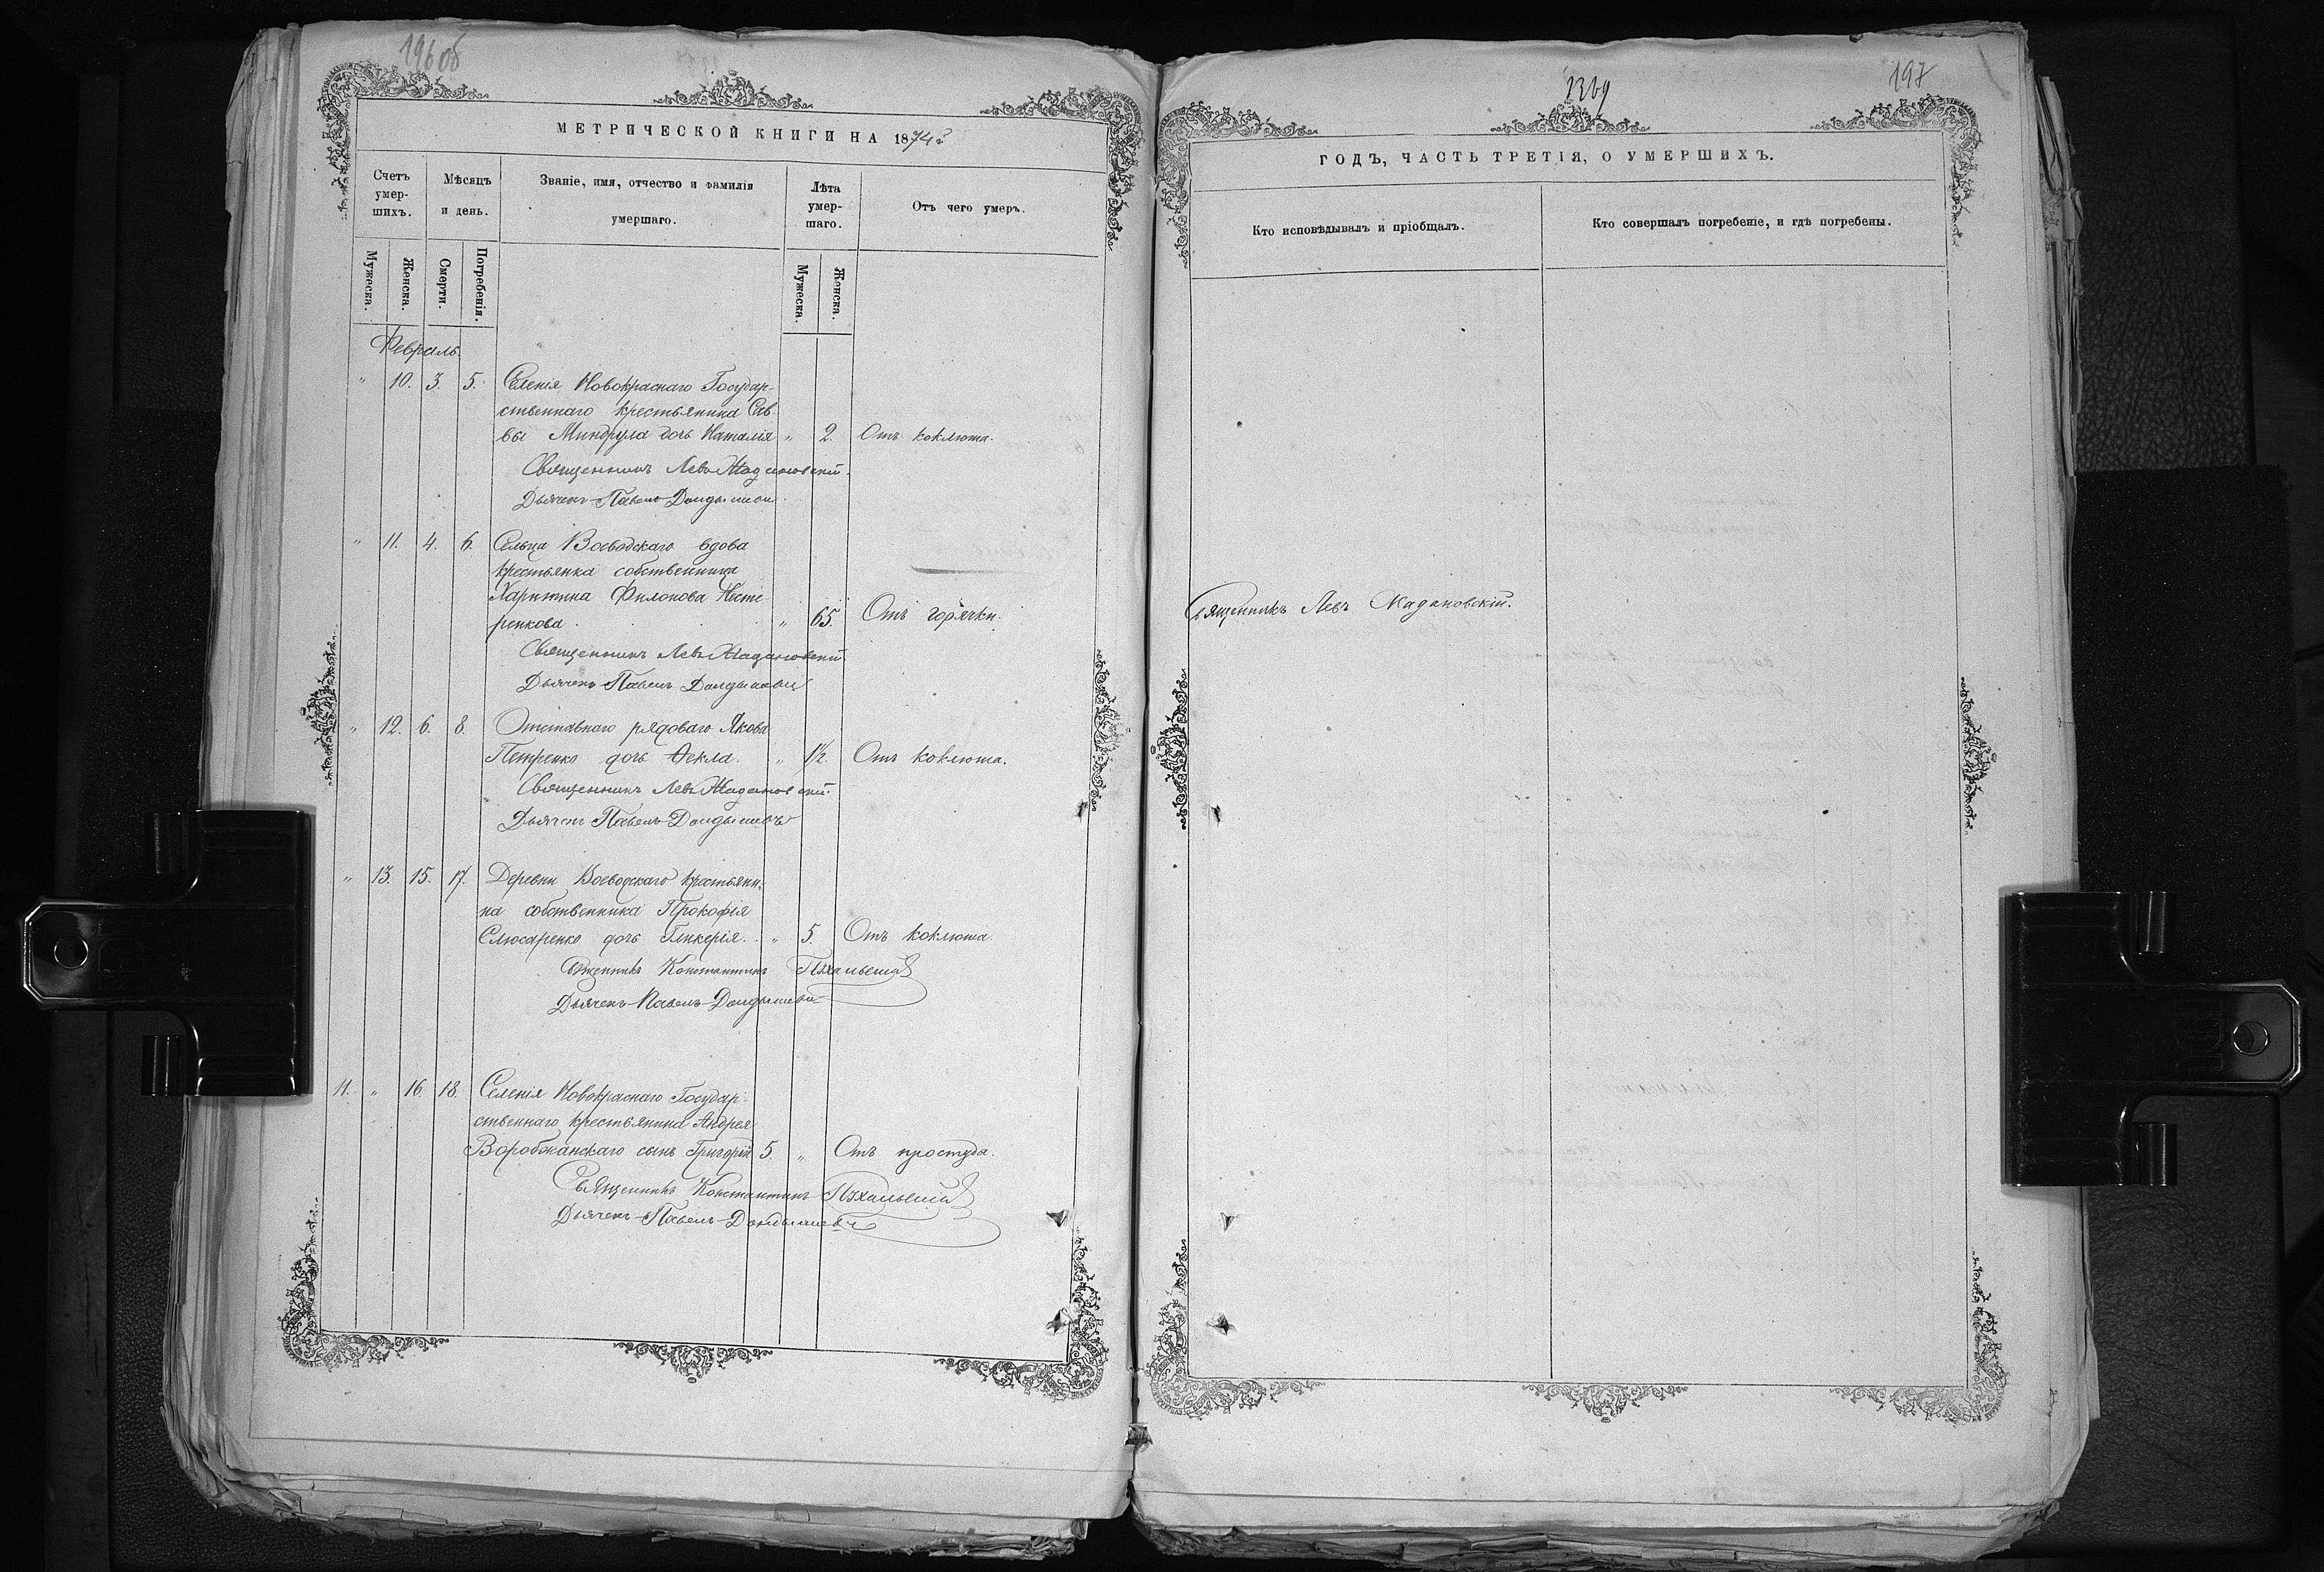 196 об
МЕТРИЧЕСКОЙ КНИГИ НА 1874 г
Счетъ умер-шихъ.
Мѣсяцъ и день.
Званіе, имя, отчество и фамилія умершаго.
Лѣта умер-шаго.
Отъ чего умеръ.
Мужеска.
Женска.
Смерти.
Погребенія.
Мужеска.
Женска.
Февраль.
" 10. 3. 5. Селенія Новокраснаго Государ-
ственнаго крестьянина Сав-
вы Миндрула дочь Наталія " 2. Отъ коклюша.
Священникъ Левъ Жадановскій.
Дьячекъ Павелъ
" 11. 4. 6. Сельца Воеводскаго вдова
крестьянка собственница
Харитина Филонова Несте-
ренкова. " 65. Отъ горячки.
Священникъ Левъ Жадановскій
Дьячекъ Павелъ
" 12. 6. 8. Отставнаго рядоваго Якова
Петренко дочь Ѳекла. " 1½. Отъ коклюша.
Священникъ Левъ Жадановскій.
Дьячекъ Павелъ
" 13. 15. 17. Деревни Воеводскаго крестьяни-
на собственника Прокофія
Слюсаренко дочь Гликерія. " 5. Отъ коклюша.
Священникъ Константинъ
Дьячекъ Павелъ
11. " 16. 18. Селенія Новокраснаго Государ-
ственнаго крестьянина Андрея
Воробжанскаго сынъ Григорій 5. " Отъ простуда.
Священникъ Константинъ
Дьячекъ Павелъ
1369
197
ГОДЪ, ЧАСТЬ ТРЕТІЯ, О УМЕРШИХЪ.
Кто исповѣдывалъ и пріобщалъ.
Кто совершалъ погребеніе, и гдѣ погребены.
Священникъ Левъ Жадановскій.